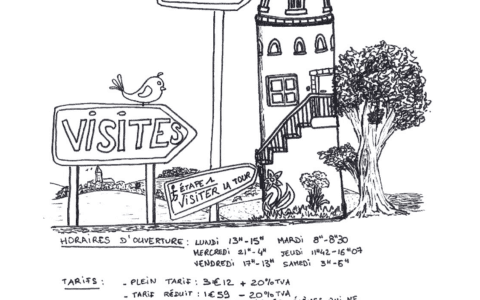 VISITES
ÉTAPE 1
VISITER LA TOUR
HORAIRES D'OUVERTURE : LUNDI 13H-15H MARDI 8H-8H30
MERCREDI 21H-4H JEUDI 11H42-16H07
VENDREDI 17H-13H SAMEDI 3H-6H
TARIFS : - PLEIN TARIF : 3€12 + 20% TVA
- TARIF RÉDUIT : 1€59 - 20% TVA